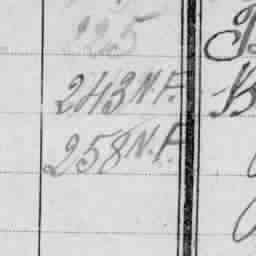 225
243 N.F.
258 N.F.